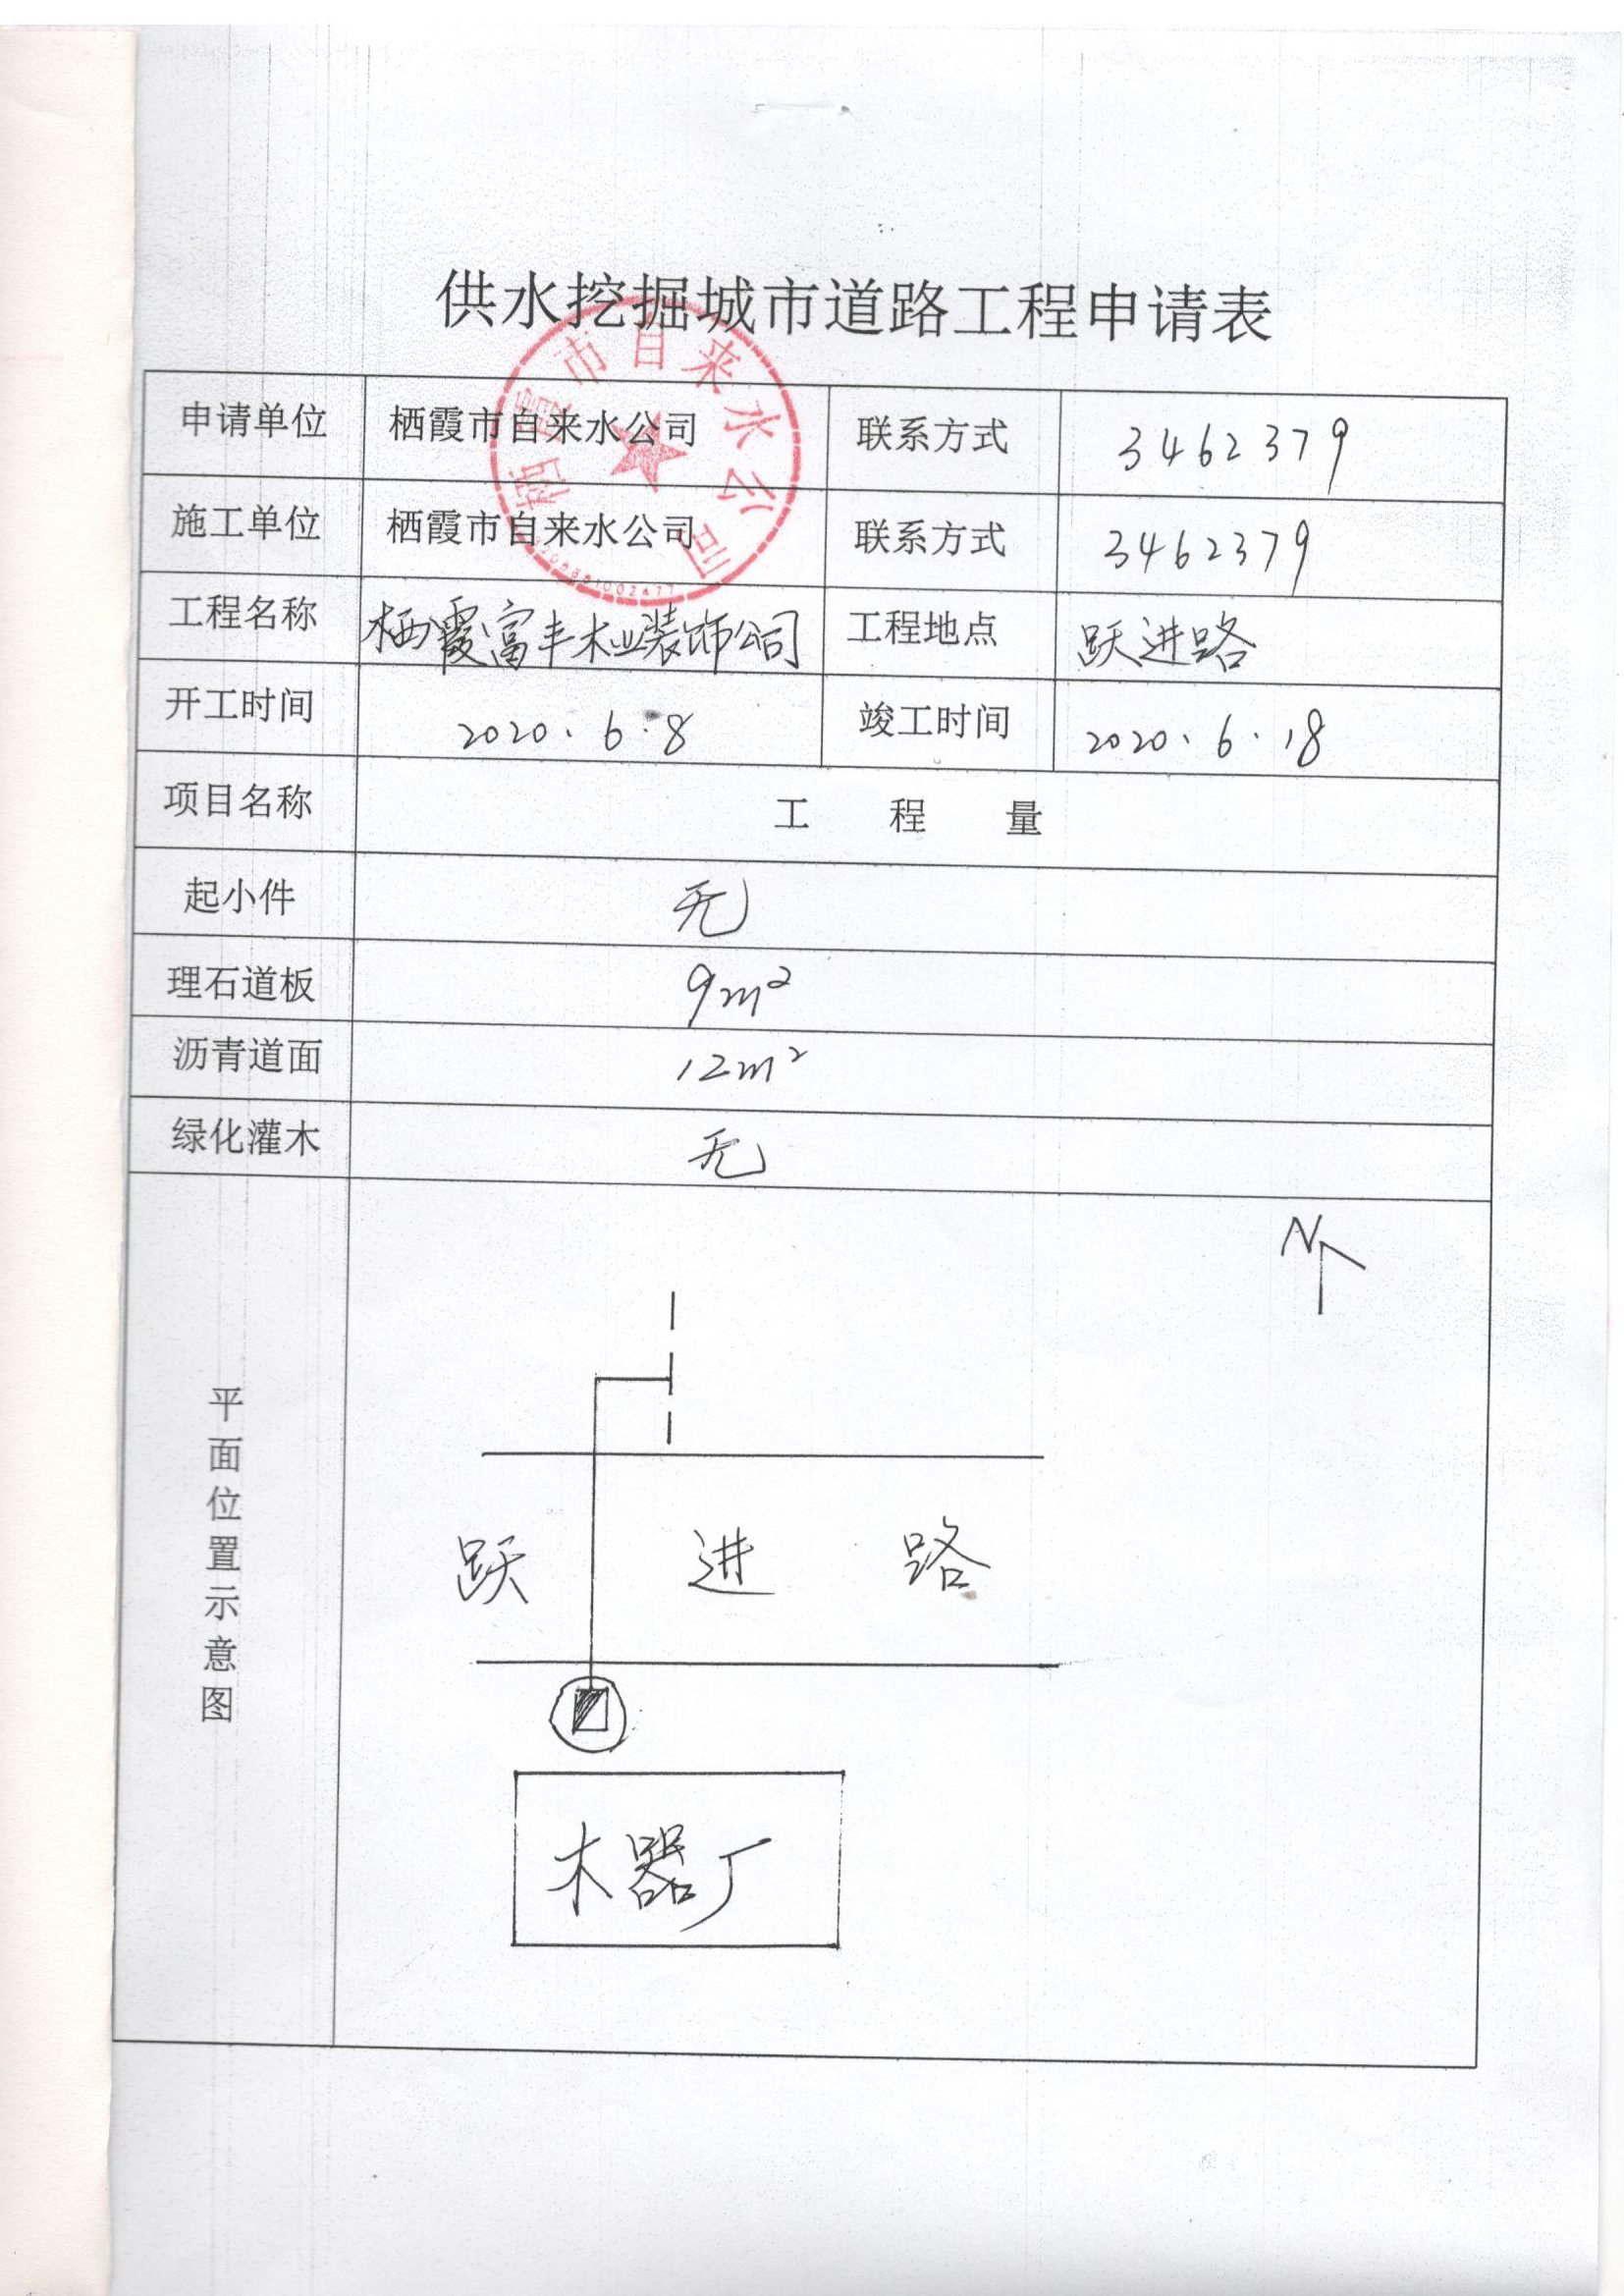 供水挖掘城市道路工程申请表
栖霞市自来水公司
申请单位 栖霞市自来水公司 联系方式 3462379
施工单位 栖霞市自来水公司 联系方式 3462379
工程名称 栖霞富丰木业装饰公司 工程地点 跃进路
开工时间 2020.6.8 竣工时间 2020.6.18
项目名称 工程量
起小件 无
理石道板 9m²
沥青道面 12m²
绿化灌木 无
平面位置示意图
N
跃进路
木器厂